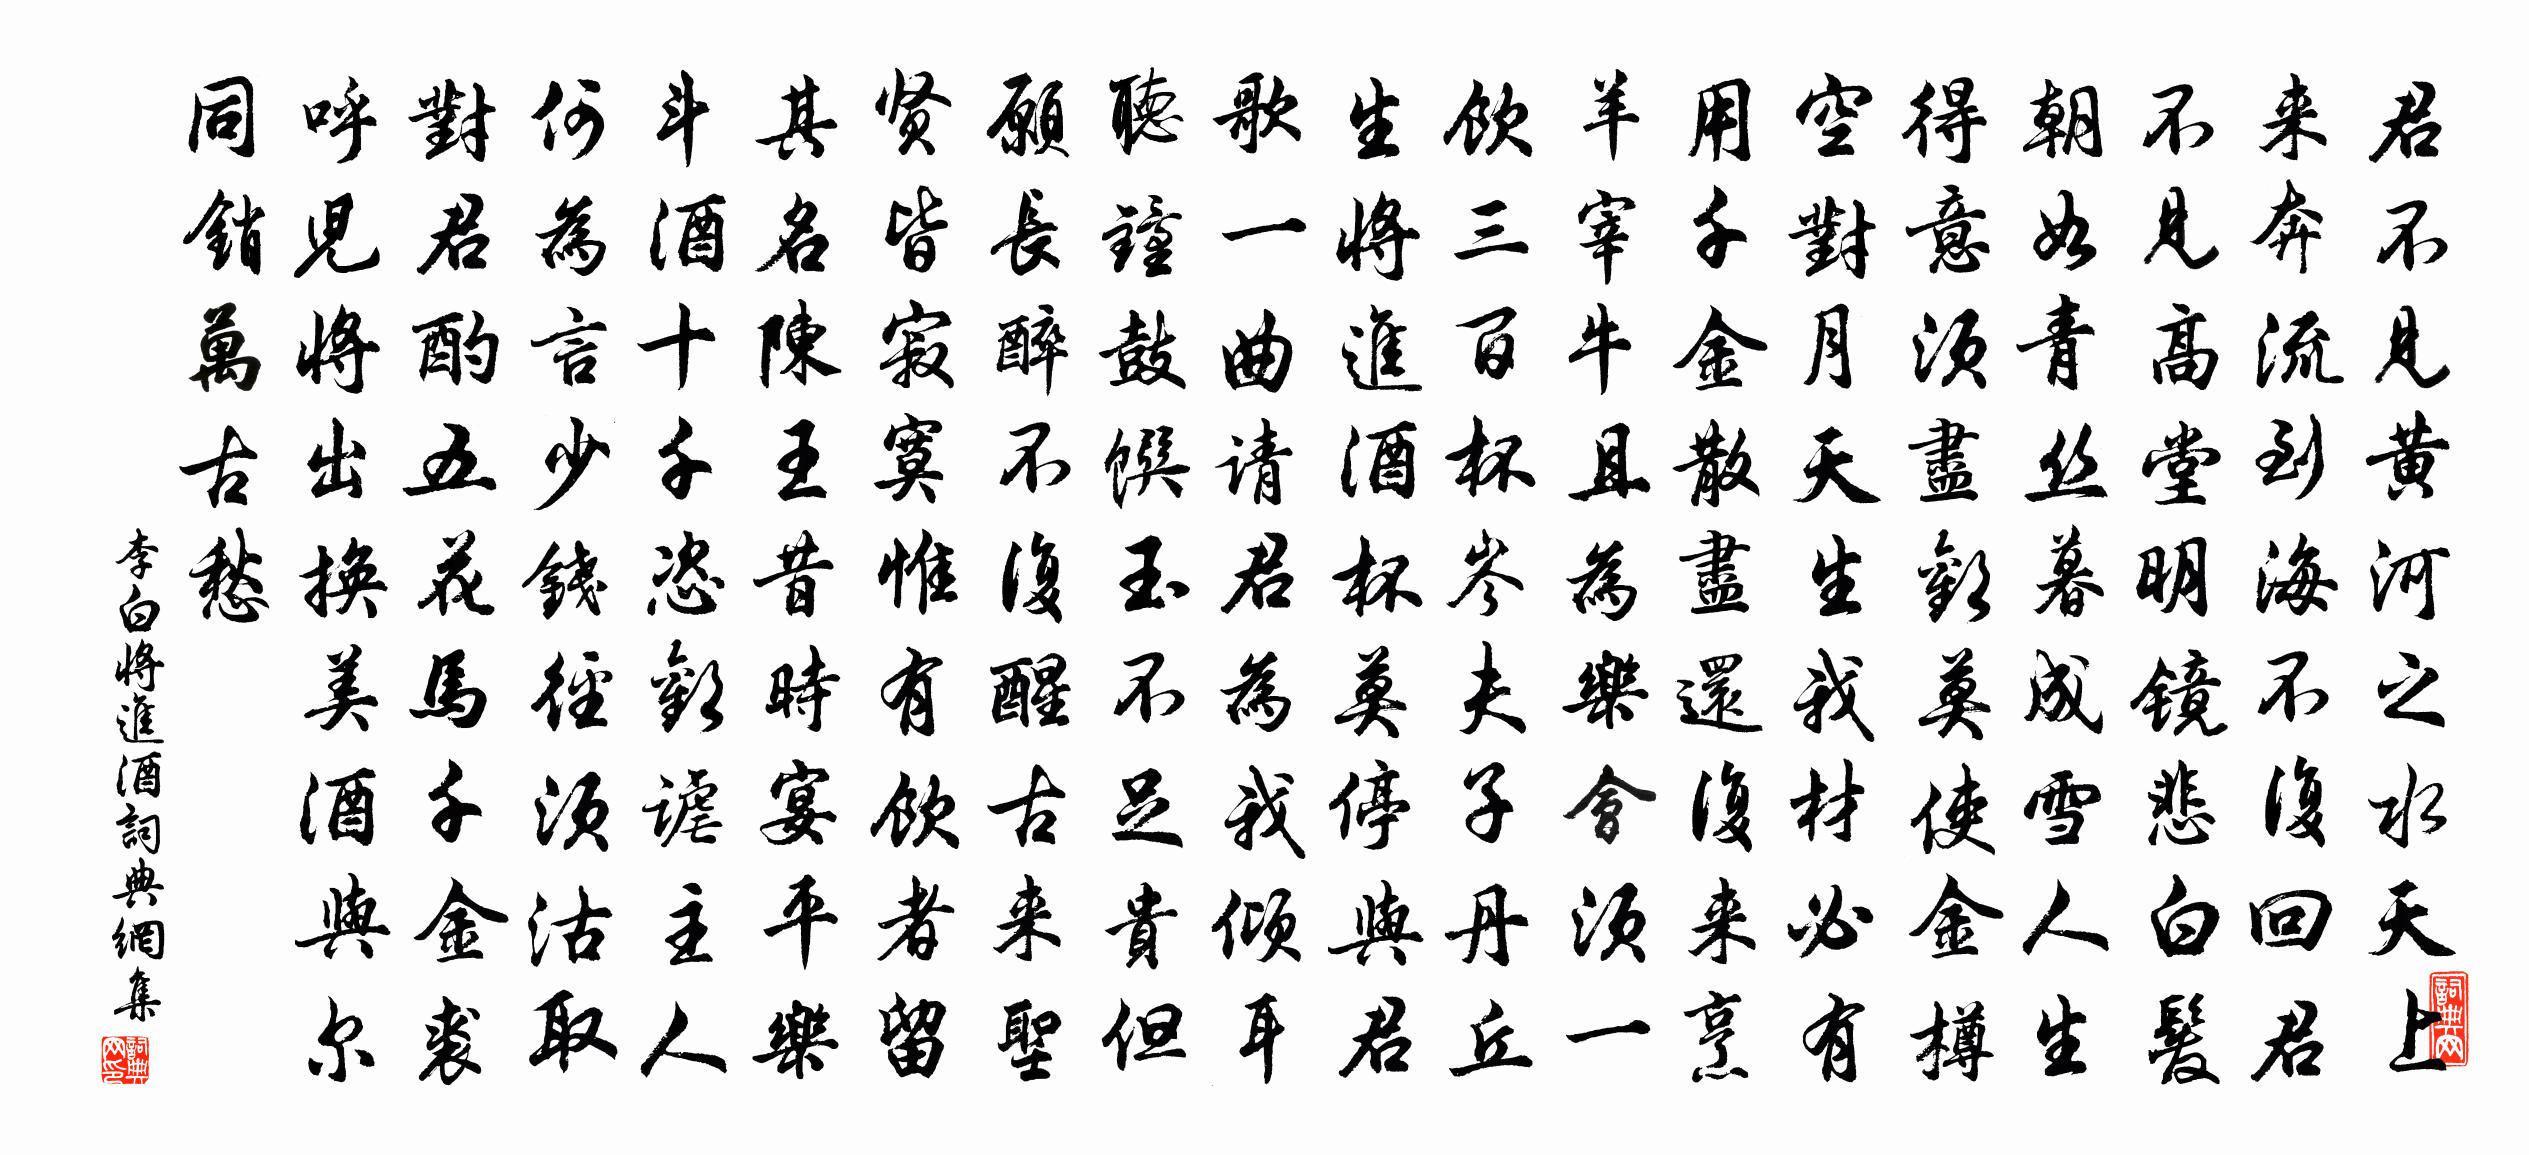 君不見黄河之水天上
来奔流到海不復回君
不見高堂明镜悲白髮
朝如青丝暮成雪人生
得意须盡歡莫使金樽
空對月天生我材必有
用千金散盡還復来烹
羊宰牛且為樂會须一
飲三百杯岑夫子丹丘
生將進酒杯莫停與君
歌一曲请君為我倾耳
聽鐘鼓饌玉不足貴但
願長醉不復醒古来聖
贤皆寂寞惟有飲者留
其名陳王昔時宴平樂
斗酒十千恣歡谑主人
何為言少錢徑须沽取
對君酌五花馬千金裘
呼兒將出换美酒與尔
同銷萬古愁
李白將進酒詞典網集
詞典网
詞典网印